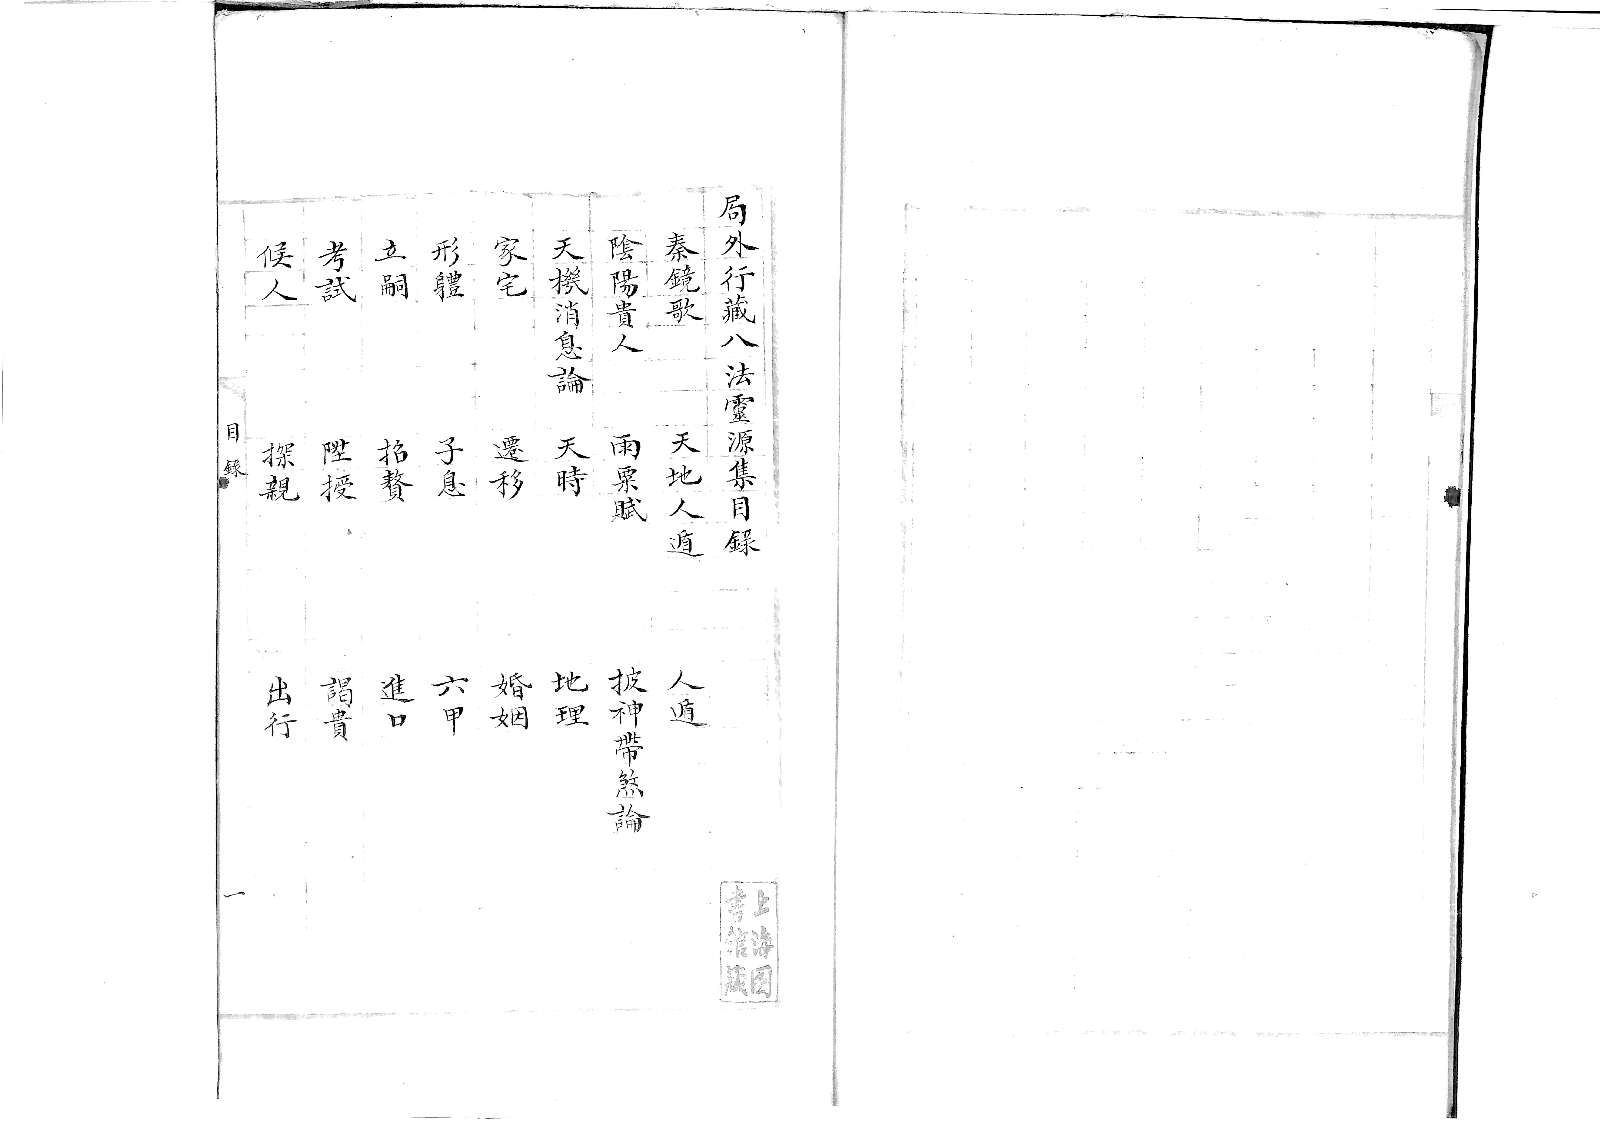 局外行藏八法靈源集目錄
秦鏡歌 天地人遁 人遁
陰陽貴人 雨粟賦 披神帶煞論
天機消息論 天時 地理
家宅 遷移 婚姻
形軆 子息 六甲
立嗣 招贅 進口
考試 陞授 謁貴
候人 探親 出行
目錄
一
上海图
書館藏